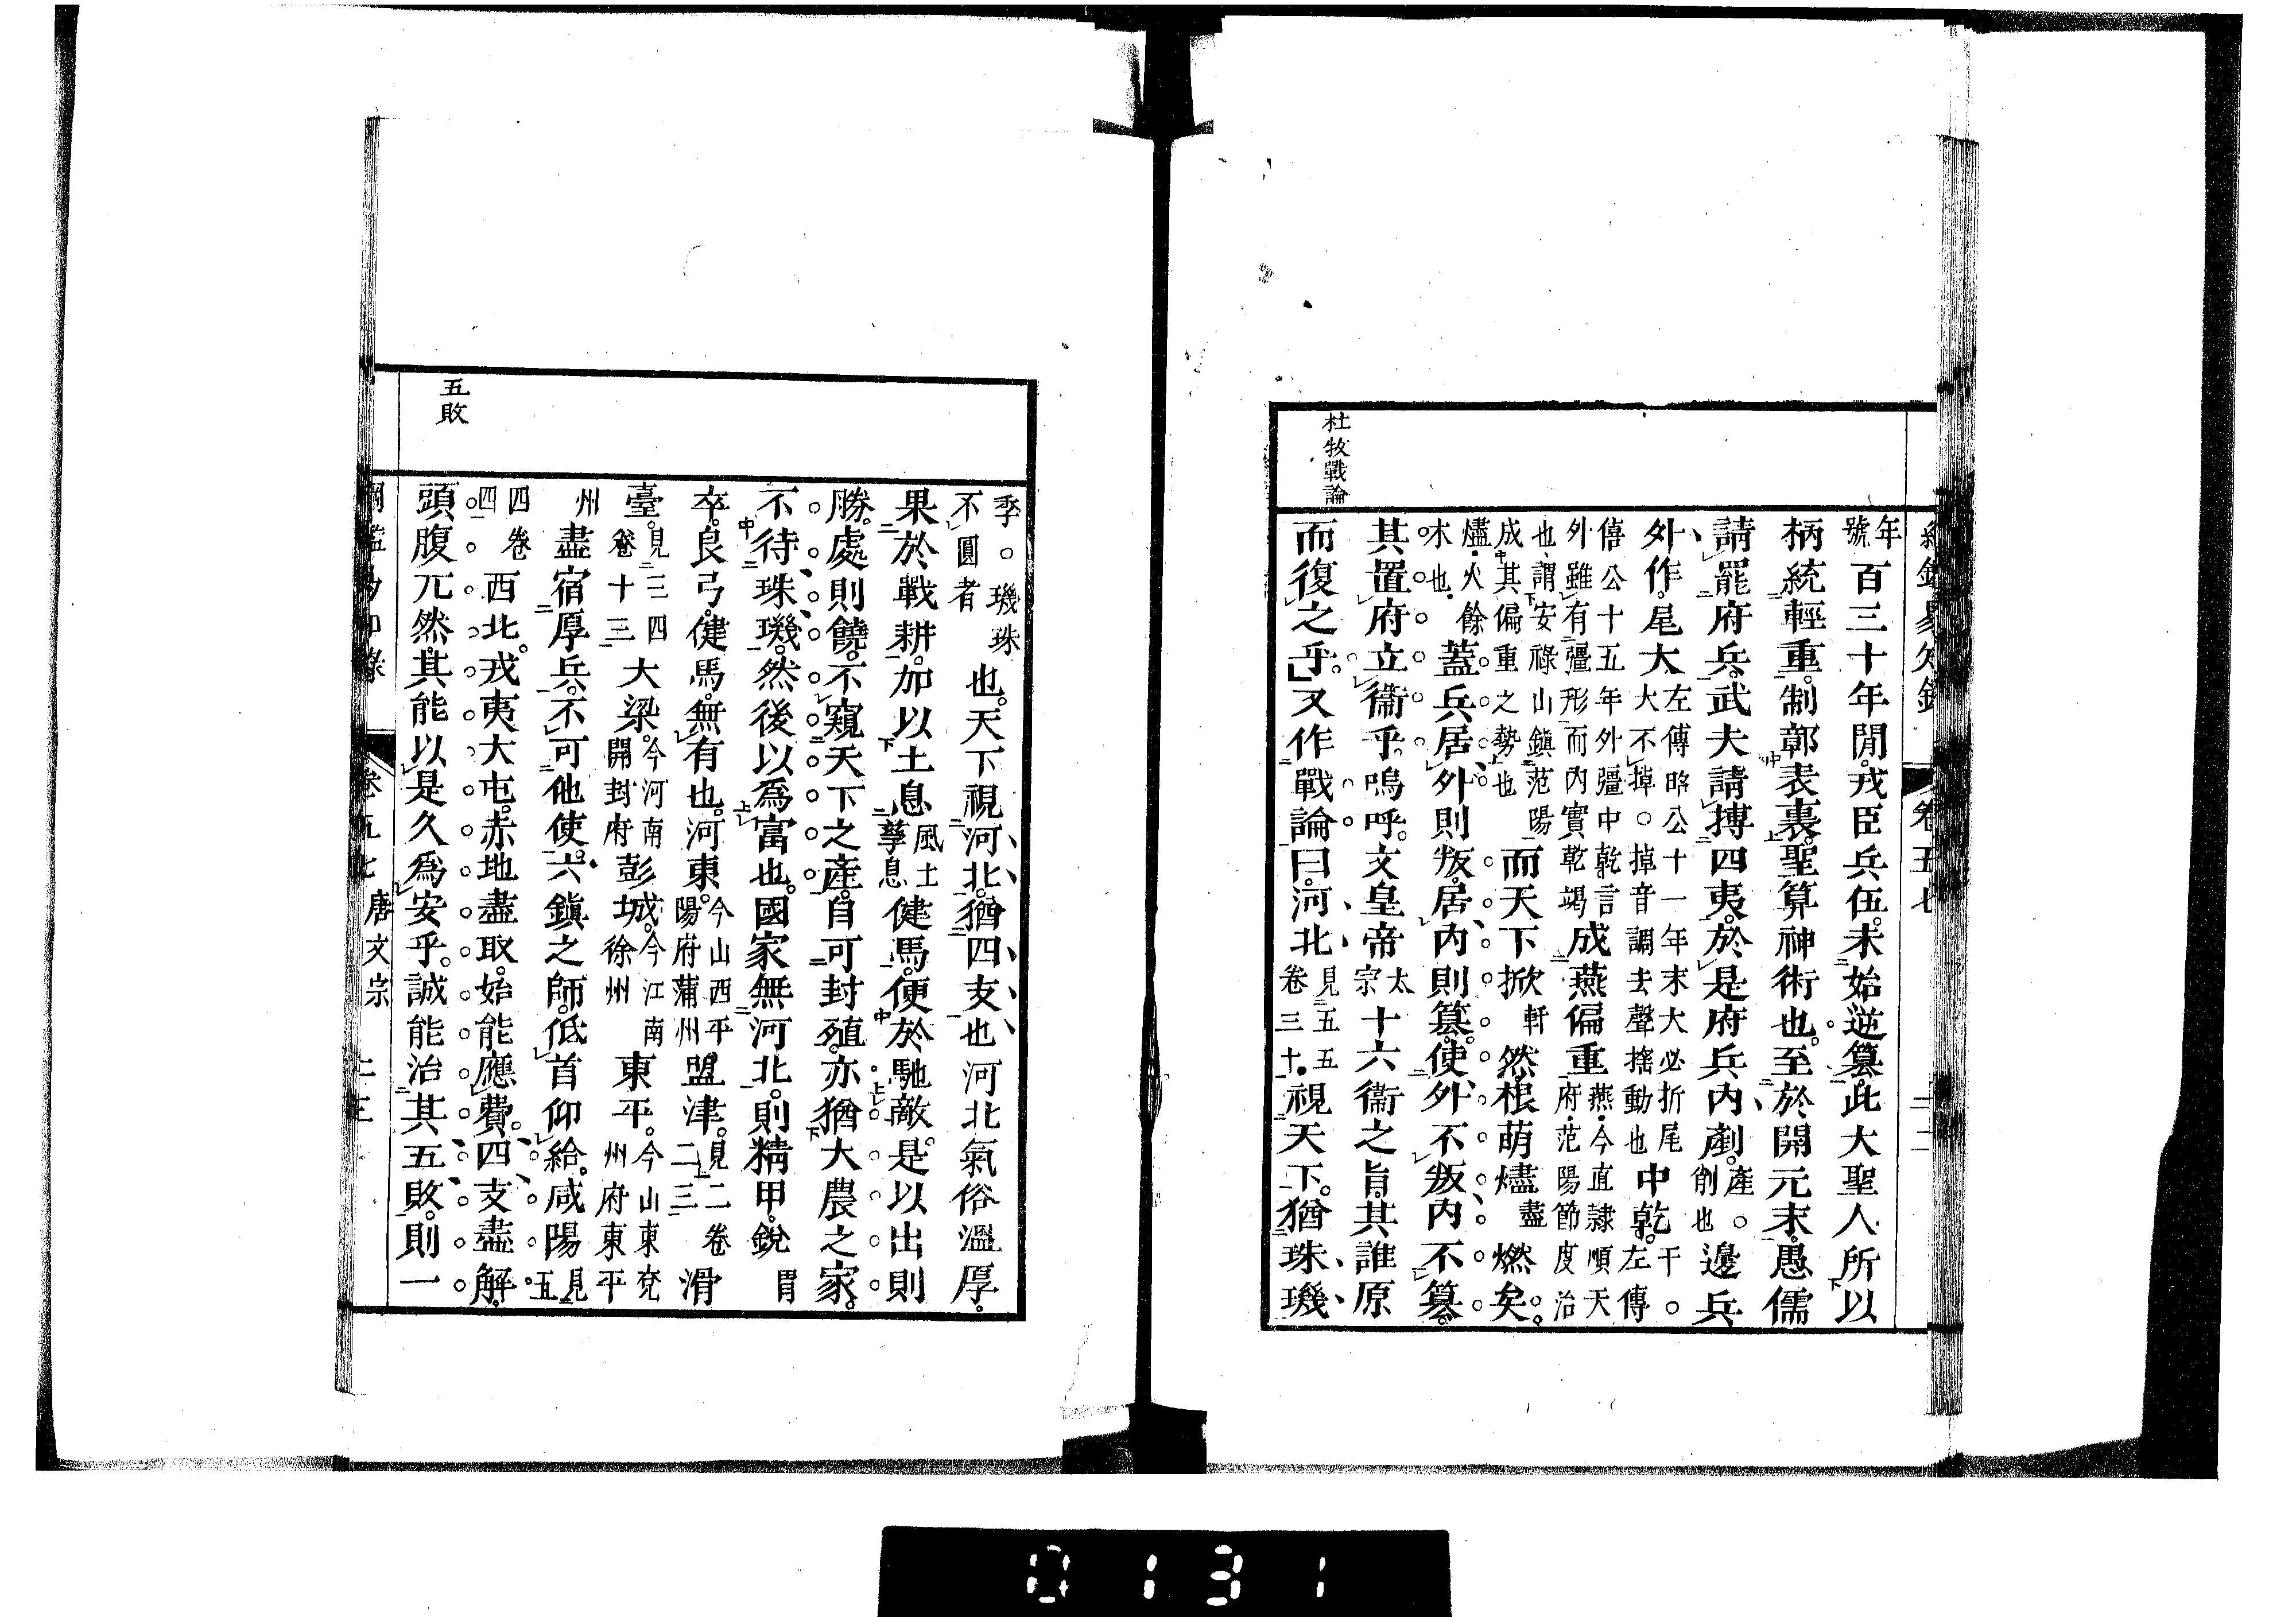 杜牧戰論
卷五七
年號百三十年閒。戎臣兵伍。未始逆篡。此大聖人所以
柄統輕重。制鄣表裏。聖算神術也。至於開元末。愚儒
請罷府兵。武夫請搏四夷。於是府兵內剷。產。削也邊兵
外作。尾大左傳昭公十一年末大必折尾大不掉。掉音調去聲搖動也中乾。干。左傳
僖公十五年外彊中乾言外雖有彊形而內實乾竭成燕偏重燕今直隸順天府范陽節度治
也謂安祿山鎮范陽成其偏重之勢也而天下掀軒然。根萌燼盡燃矣。
燼火餘木也蓋兵居外則叛。居內則篡。使外不叛內不篡。
其置府立衞乎。嗚呼。文皇帝太宗十六衞之旨。其誰原
而復之乎。」又作戰論曰。河北見五五卷三十視天下。猶珠璣
季。璣珠不圓者也。天下視河北。猶四支也河北氣俗溫厚。
果於戰耕。加以土息風土孳息健馬。便於馳敵。是以出則
勝。處則饒。不窺天下之產。自可封殖。亦猶大農之家。
不待珠璣。然後以爲富也。國家無河北。則精甲。銳冑
卒。良弓。健馬。無有也。河東。今山西平陽府蒲州盟津。見二卷二三滑
臺。見三四卷十三大梁。今河南開封府彭城。今江南徐州東平。今山東兗州府東平
州盡宿厚兵。不可他使。六鎮之師。低首仰給。咸陽見五
四卷四西北。戎夷大屯。赤地盡取。始能應費。四支盡解。
頭腹兀然。其能以是久爲安乎。誠能治其五敗。則一
五敗
卷五七 唐文宗
0131